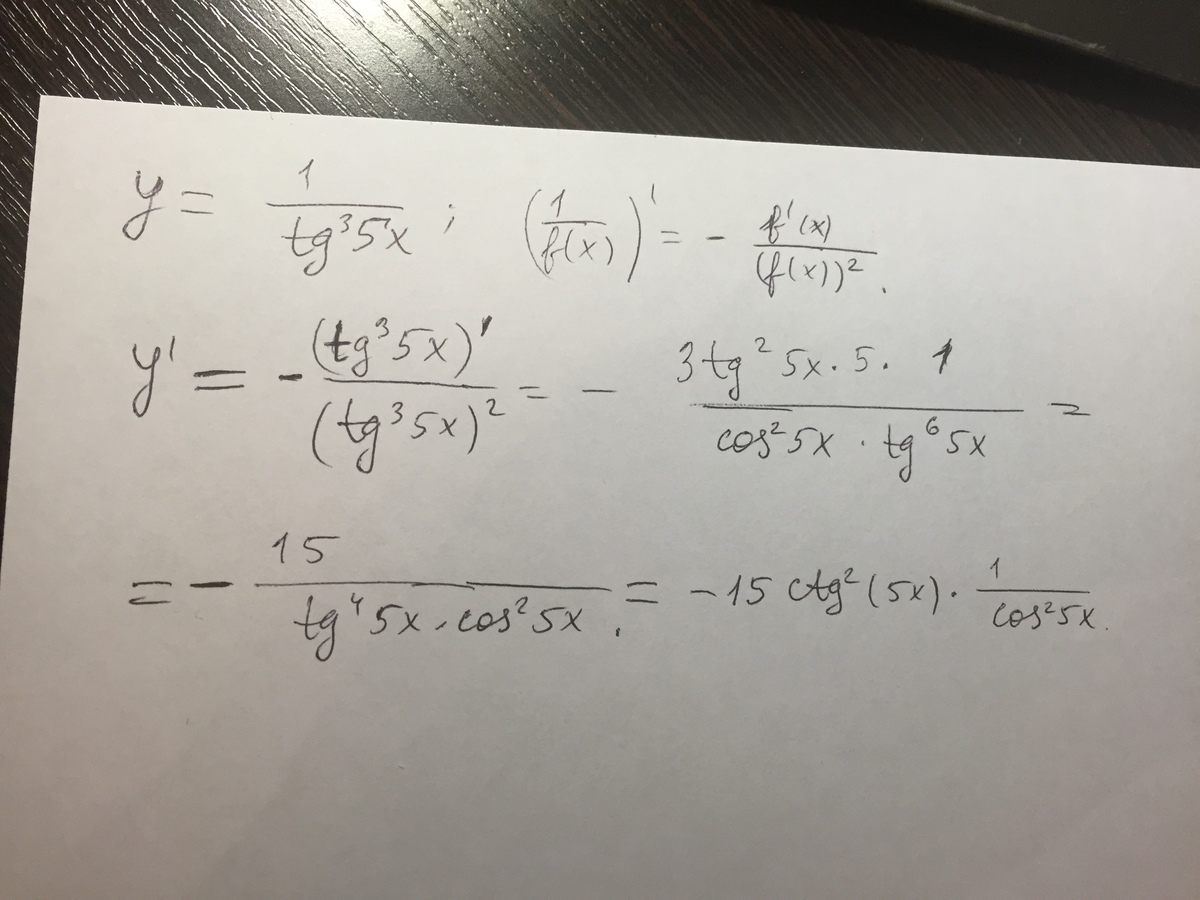 y = 1/tg³5x ; (1/f(x))' = - f'(x)/(f(x))².
y' = - (tg³5x)'/(tg³5x)² = - 3tg²5x · 5 · 1/cos²5x · tg⁶5x =
= - 15/tg⁴5x · cos²5x . = -15 ctg²(5x) · 1/cos²5x.